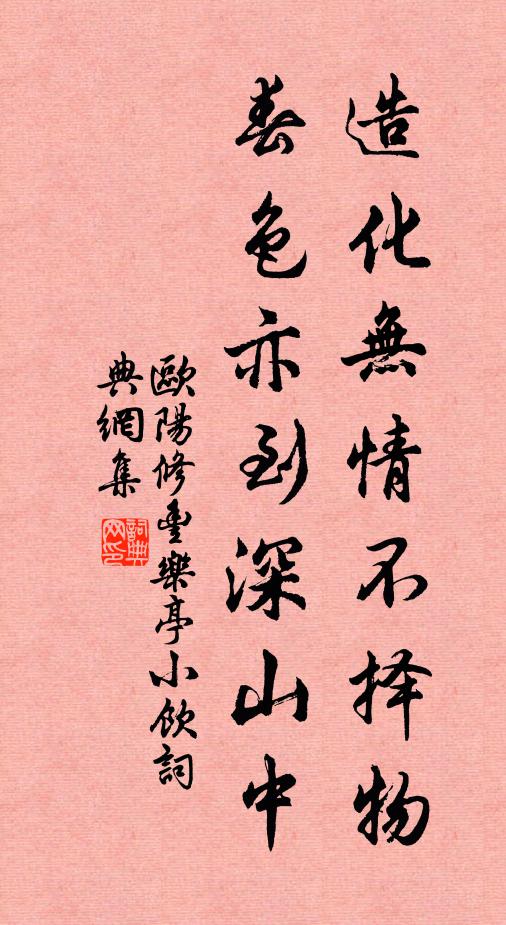 造化無情不择物
春色亦到深山中
歐陽修豐樂亭小飲詞
典網集
詞典網印